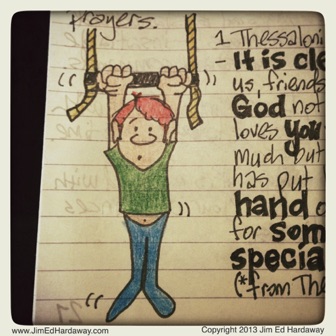 prayers.
1 Thessaloni
- It is cle
us, friends
God not
loves you
much but
has put
hand o
for som
specia
(*from The
www.JimEdHardaway.com
Copyright 2013 Jim Ed Hardaway